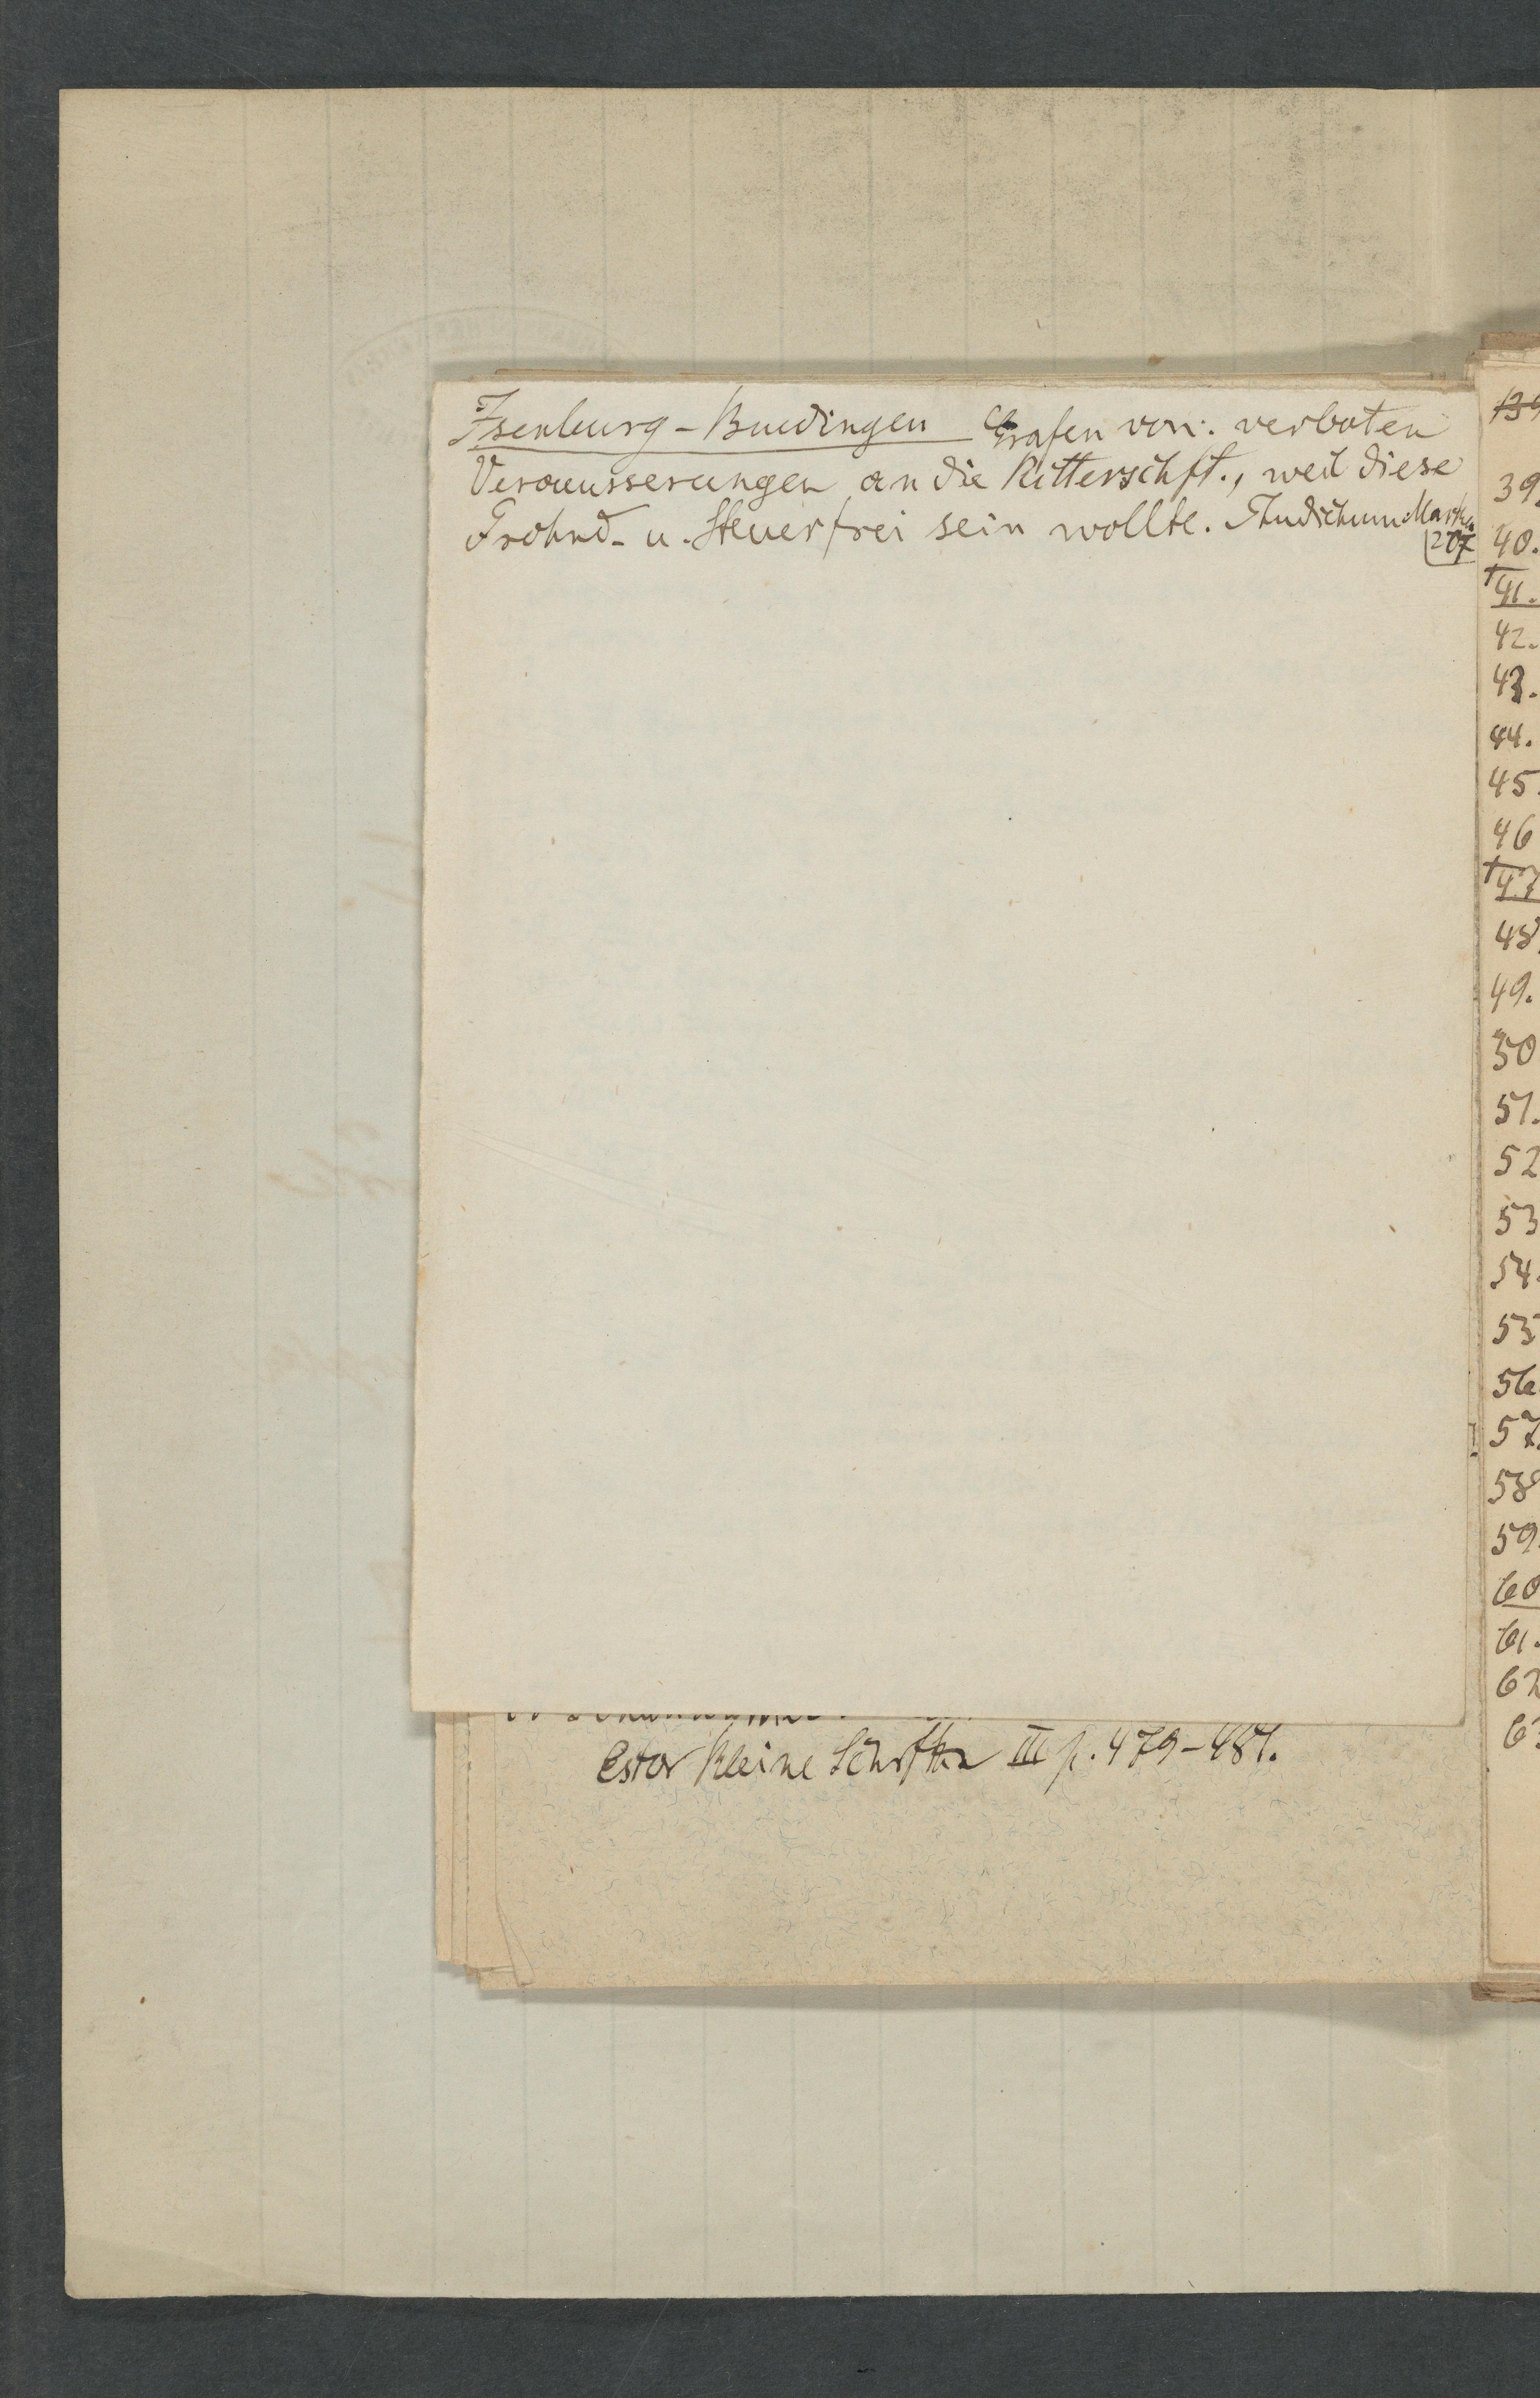 Isenburg-Buedingen Grafen von. verboten
Veraeusserungen an die Ritterschft., weil diese
Frohnd- u. Steuerfrei sein wollte. Thudichum: Markv.
207
Estor Kleine Schrften III p. 479-481.
39.
40.
41.
42.
43.
44.
45.
46
47
48.
49.
50
51.
52
53
54.
55
56
57.
58
59.
60
61.
62